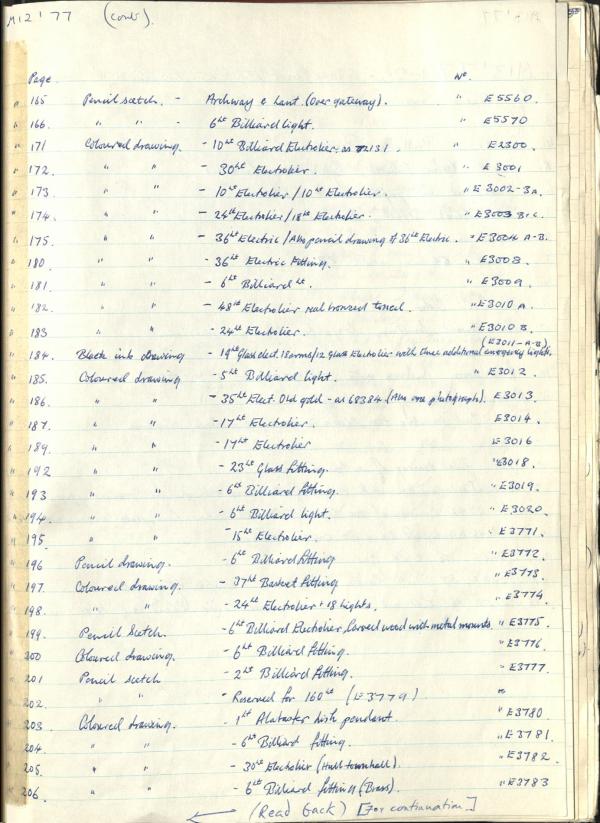 M12'77 (contd).
Page. No.
" 165 Pencil scetch. - Archway & Lant. (Over gateway). " E5560.
" 166. " " - 6Lt Billiard light. " E5570
" 171 Coloured drawing - 10Lt Billiard Electrolier. as 72131. " E2300.
" 172. " " - 30Lt Electrolier. " E3001
" 173. " " - 10Lt Electrolier/10Lt Electrolier. " E3002-3A.
" 174. " " - 24Lt Electrolier/18Lt Electrolier. " E3003 B-C.
" 175. " " - 36Lt Electric/Also pencil drawing of 36Lt Electric. " E3004 A-B.
" 180. " " - 36Lt Electric Fitting. " E3008.
" 181. " " - 6Lt Billiard Lt. " E3009.
" 182. " " - 48Lt Electrolier real bronzed toned. " E3010 A.
" 183 " " - 24Lt Electrolier. " E3010 B.
" 184. Black ink drawing - 19Lt Glass elect. 18 arms/12 Glass Electrolier with three additional emergency lights. (E3011-A-B)
" 185. Coloured drawing - 5Lt Billiard light. " E3012.
" 186. " " - 35Lt Elect. Old gold - as 68384. (Also one photograph). " E3013.
" 187. " " - 17Lt Electrolier. " E3014.
" 189. " " - 17Lt Electrolier " E3016
" 192 " " - 23Lt Glass fitting. " E3018.
" 193 " " - 6Lt Billiard fitting. " E3019.
" 194. " " - 6Lt Billiard light. " E3020.
" 195. " " - 15Lt Electrolier. " E3771.
" 196 Pencil drawing. - 6Lt Billiard fitting " E3772.
" 197. Coloured drawing. - 37Lt Basket fitting " E3773.
" 198. " " - 24Lt Electrolier + 18 lights. " E3774
" 199. Pencil Scetch. - 6Lt Billiard Electrolier, Carved wood with metal mounts. " E3775.
" 200 Coloured drawing. - 6Lt Billiard fitting. " E3776.
" 201 Pencil scetch - 2Lt Billiard fitting. " E3777.
" 202. " " - Reserved for 160Lt (E3779) "
" 203. Coloured drawing. - 1Lt Alabaster dish pendant. " E3780
" 204. " " - 6Lt Billiard fitting. " E3781.
" 205. " " - 30Lt Electrolier (Hull townhall). " E3782.
" 206. " " - 6Lt Billiard fittings (Brass). " E3783
← (Read back) [For continuation.]